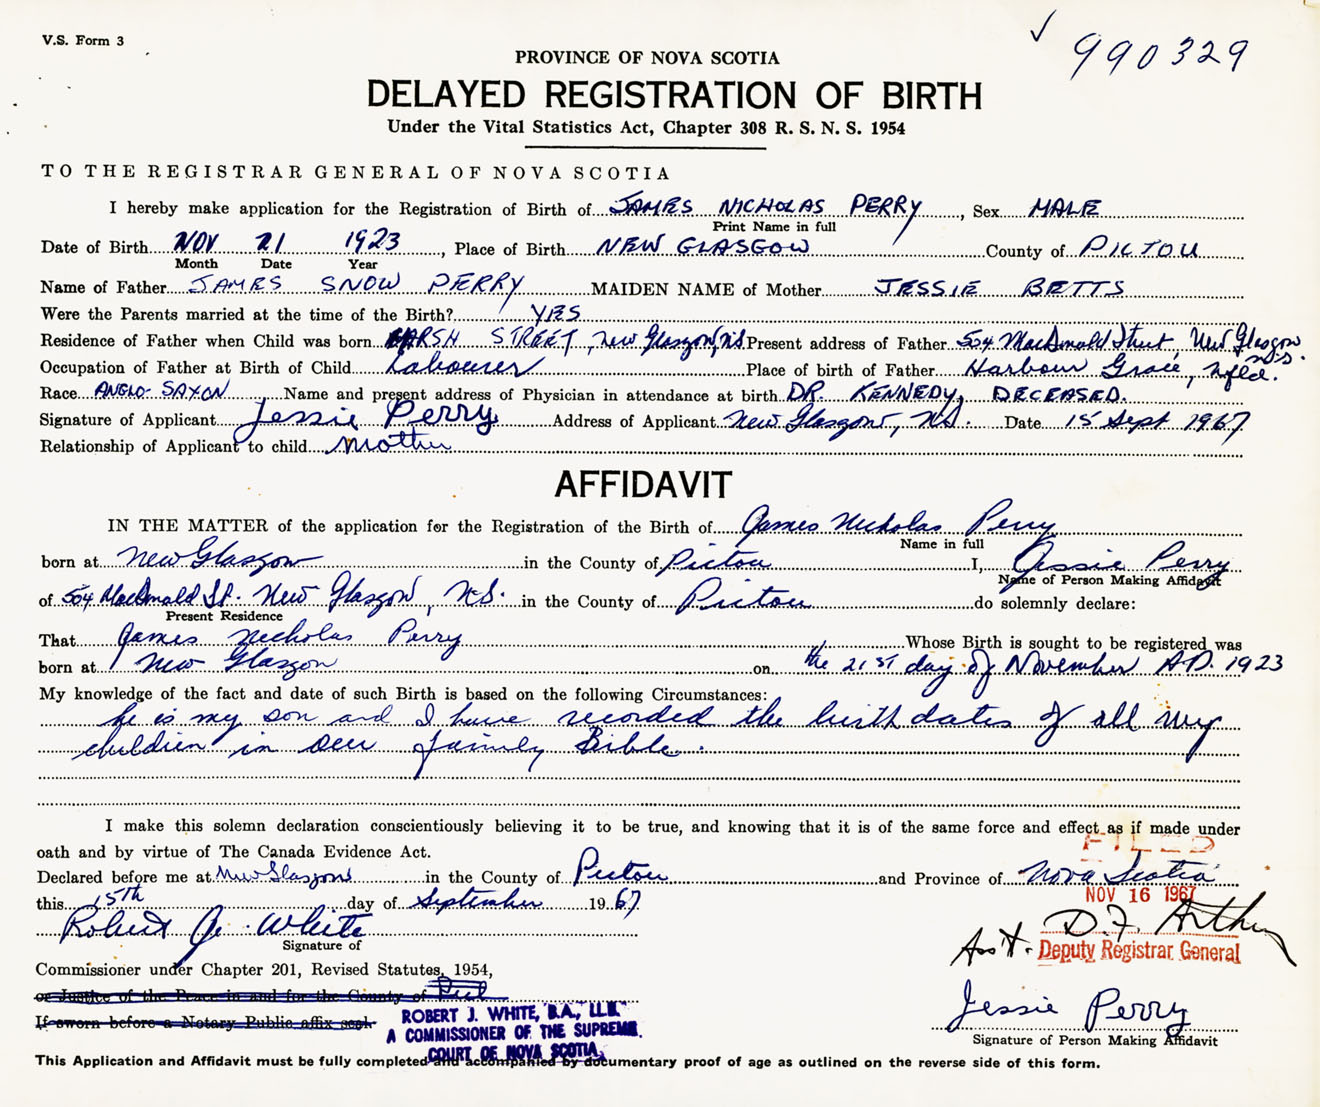 V.S. Form 3
990329
PROVINCE OF NOVA SCOTIA
DELAYED REGISTRATION OF BIRTH
Under the Vital Statistics Act, Chapter 308 R. S. N. S. 1954
TO THE REGISTRAR GENERAL OF NOVA SCOTIA
I hereby make application for the Registration of Birth of JAMES NICHOLAS PERRY, Sex MALE
Print Name in full
Date of Birth NOV 21 1923, Place of Birth NEW GLASGOW County of PICTOU
Month Date Year
Name of Father JAMES SNOW PERRY MAIDEN NAME of Mother JESSIE BETTS
Were the Parents married at the time of the Birth? YES
Residence of Father when Child was born MARSH STREET, New Glasgow, NS Present address of Father 504 MacDonald Street, New Glasgow N.S.
Occupation of Father at Birth of Child Labourer Place of birth of Father Harbour Grace, Nfld.
Race ANGLO-SAXON Name and present address of Physician in attendance at birth DR. KENNEDY, DECEASED.
Signature of Applicant Jessie Perry Address of Applicant New Glasgow, N.S. Date 15 Sept 1967
Relationship of Applicant to child Mother
AFFIDAVIT
IN THE MATTER of the application for the Registration of the Birth of James Nicholas Perry
Name in full
born at New Glasgow in the County of Pictou I, Jessie Perry
Name of Person Making Affidavit
of 504 MacDonald St. New Glasgow, N.S. in the County of Pictou do solemnly declare:
Present Residence
That James Nicholas Perry Whose Birth is sought to be registered was
born at New Glasgow on the 21ST day of November A.D. 1923
My knowledge of the fact and date of such Birth is based on the following Circumstances:
he is my son and I have recorded the birth dates of all my
children in our family Bible.
I make this solemn declaration conscientiously believing it to be true, and knowing that it is of the same force and effect as if made under
oath and by virtue of The Canada Evidence Act.
FILED
Declared before me at New Glasgow in the County of Pictou and Province of Nova Scotia
NOV 16 1967
this 15th day of September 1967
Robert J. White
Signature of
Ass't. D.F. Arthur
Deputy Registrar General
Commissioner under Chapter 201, Revised Statutes, 1954,
or Justice of the Peace in and for the County of Pict
If sworn before a Notary Public affix seal
ROBERT J. WHITE, B.A., LL.B.
A COMMISSIONER OF THE SUPREME
COURT OF NOVA SCOTIA.
Jessie Perry
Signature of Person Making Affidavit
This Application and Affidavit must be fully completed and accompanied by documentary proof of age as outlined on the reverse side of this form.